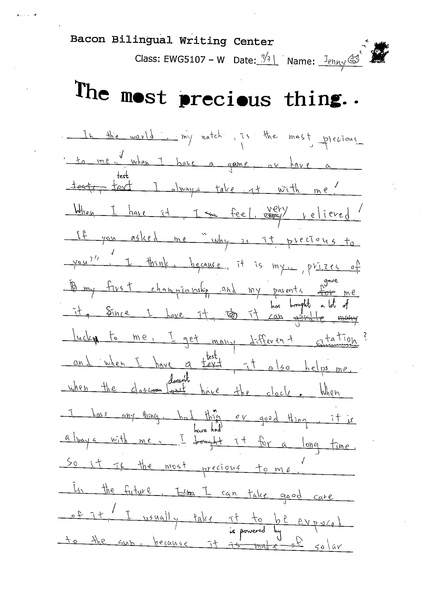 Bacon Bilingual Writing Center
Class: EWG5107 – W Date: 9/21 Name: Jenny
The most precious thing..
In the world, my watch, is the most precious
to me. When I have a game, or have a
test
test, text, I always take it with me!
When I have it, I feel very relieved!
If you asked me "why is it precious to
you?" I think, because, it is my prizes of
gave
my first championship and my parents for me
has brought a lot of
it. Since I have it, it can many
luck to me. I get many different station?
test
and when I have a text, it also helps me.
doesn't
when the class have the clock. When
I have any thing bad thin or good thing, it is
have had
always with me. I bought it for a long time.
So it is the most precious to me.
In the future, I can take good care
of it! I usually take it to be exposed
is powered by
to the sun, because it is make of solar